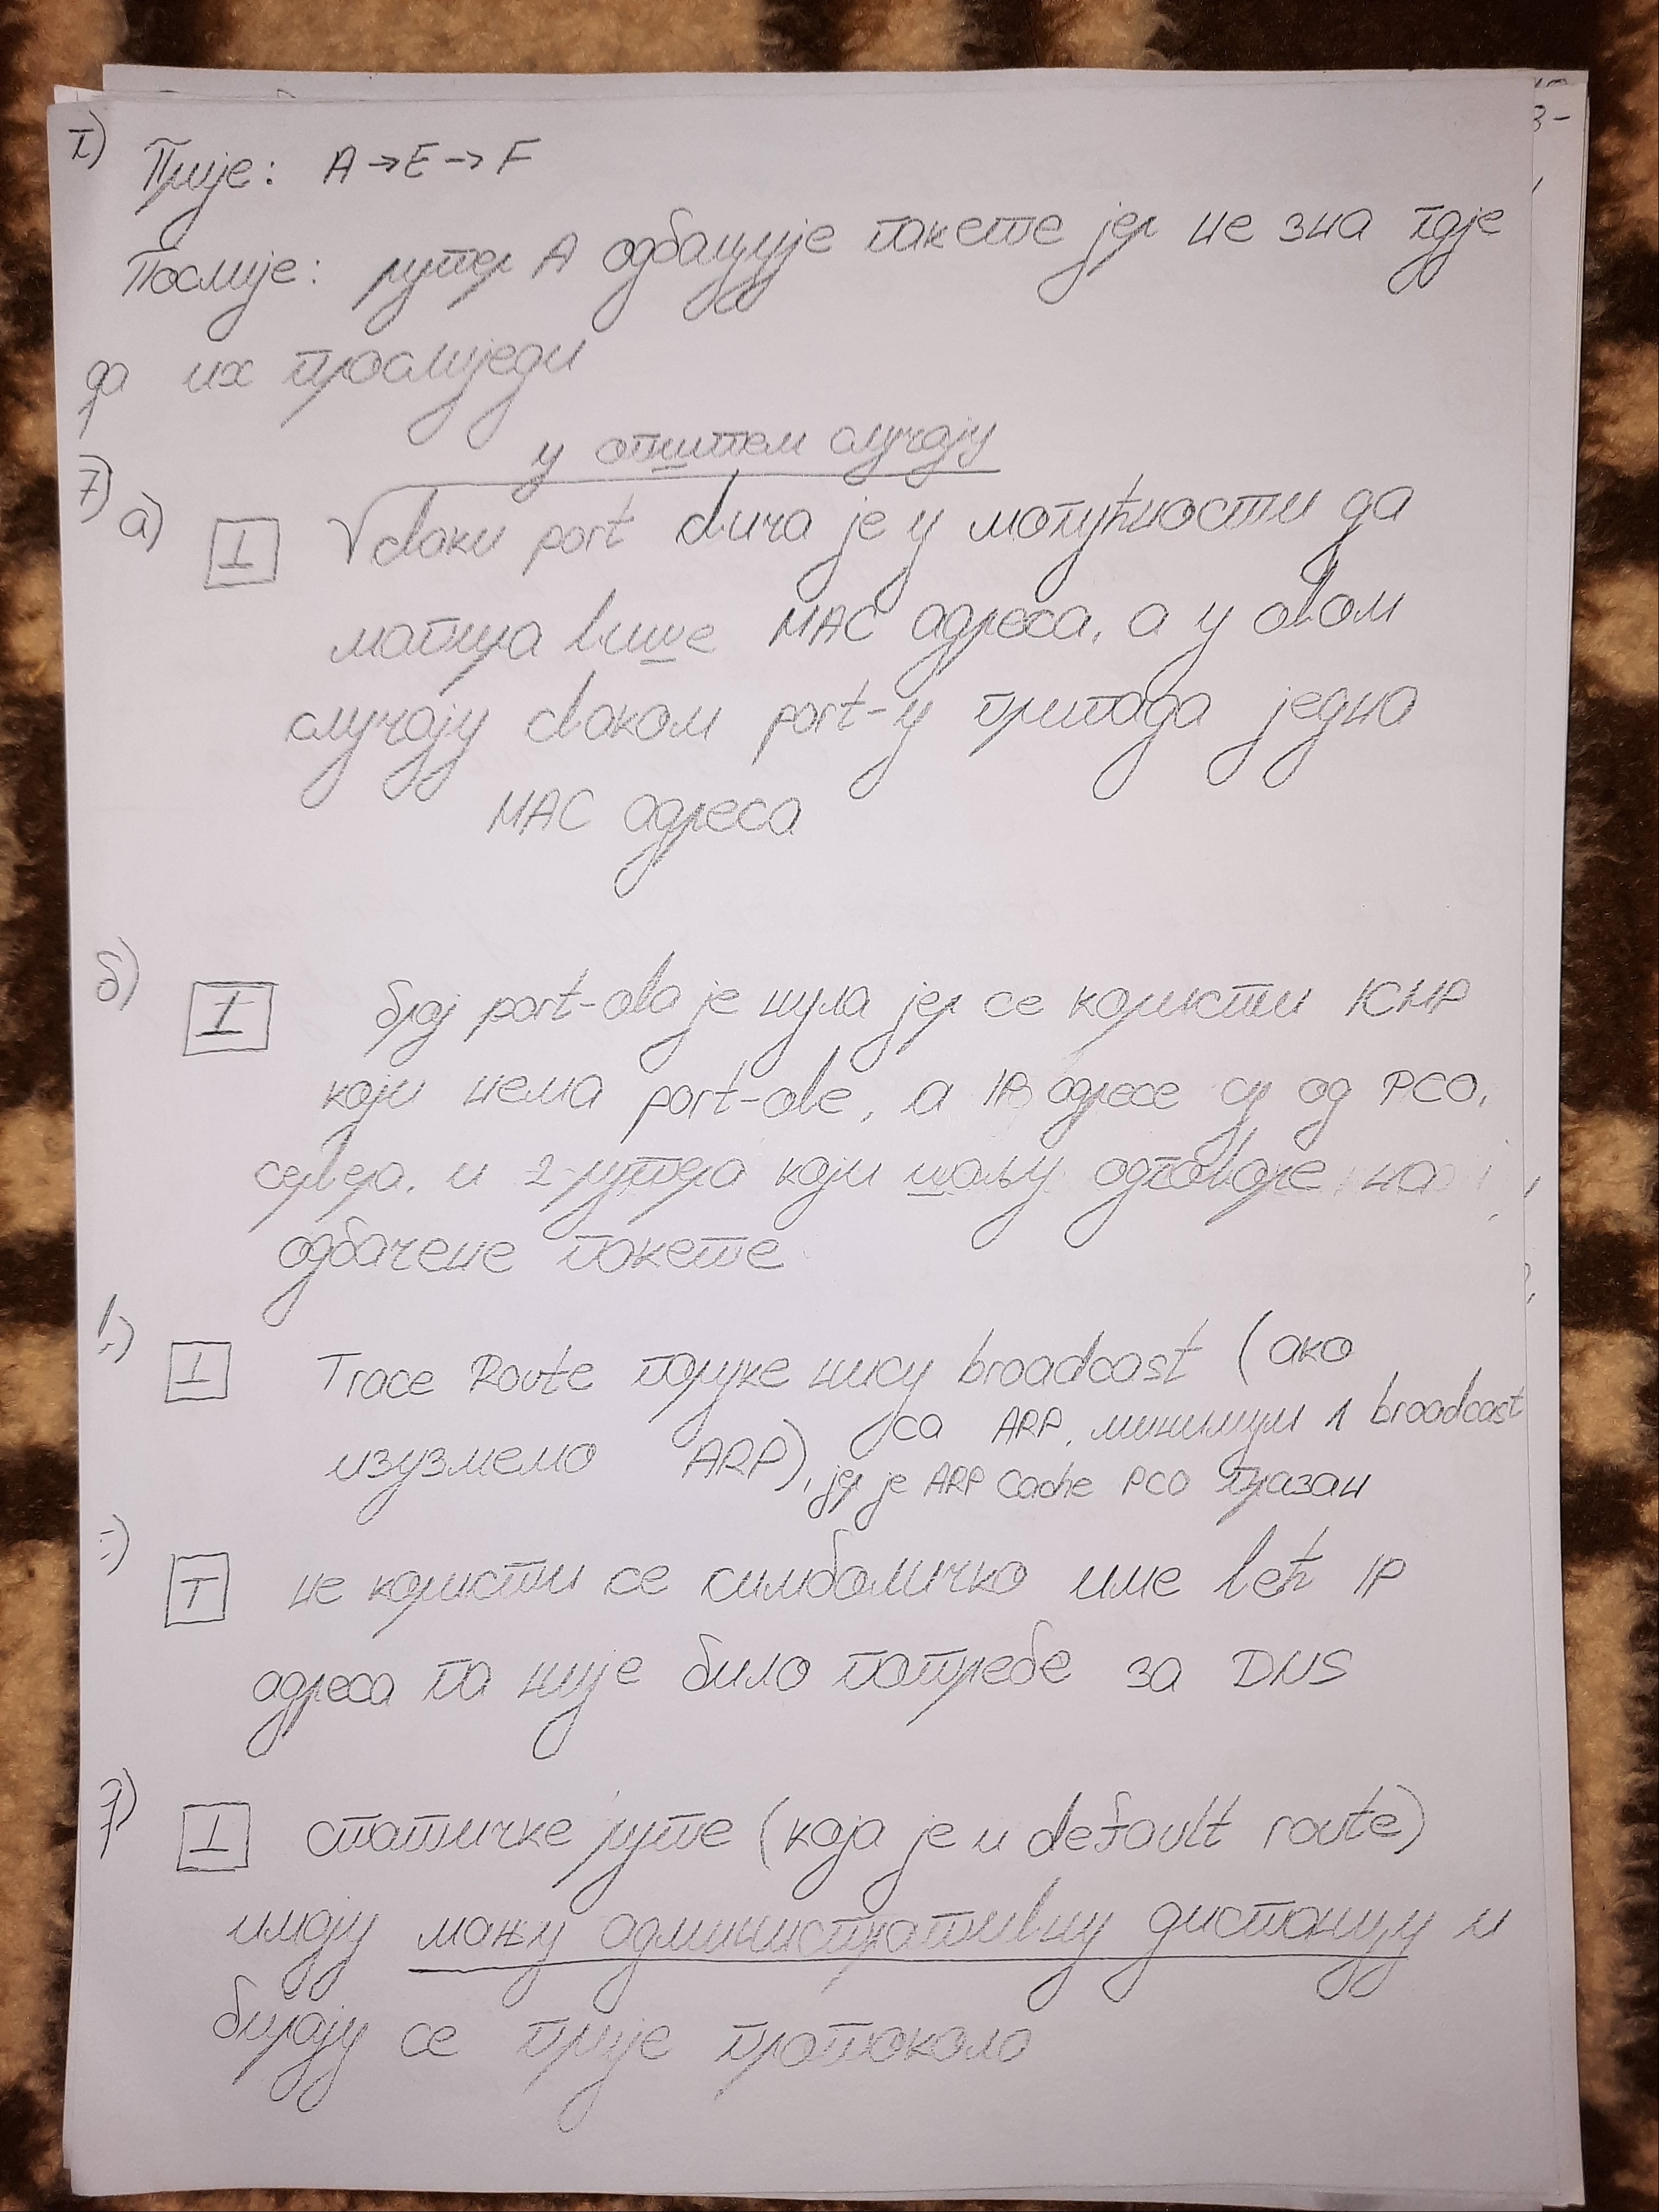 г) Прије: A → E → F
Послије: рутер A одбацује пакете јер не зна гдје
да их прослиједи
у општем случају
7) а) ⊥ сваки port свича је у могућности да
мапира више MAC адреса, а у овом
случају сваком port-у припада једна
MAC адреса
б) ⊥ број port-ова је нула јер се користи ICMP
који нема port-ове, а IP адресе су од PC0,
сервера, и 2 рутера који шаљу одговоре на
одбачене пакете
в) ⊥ Trace Route поруке нису broadcast (ако
изузмемо ARP), са ARP, минимум 1 broadcast
јер је ARP Cache PC0 празан
г) T не користи се симболичко име већ IP
адреса па није било потребе за DNS
д) ⊥ статичке руте (која је и default route)
имају мању административну дистанцу и
бирају се прије протокола